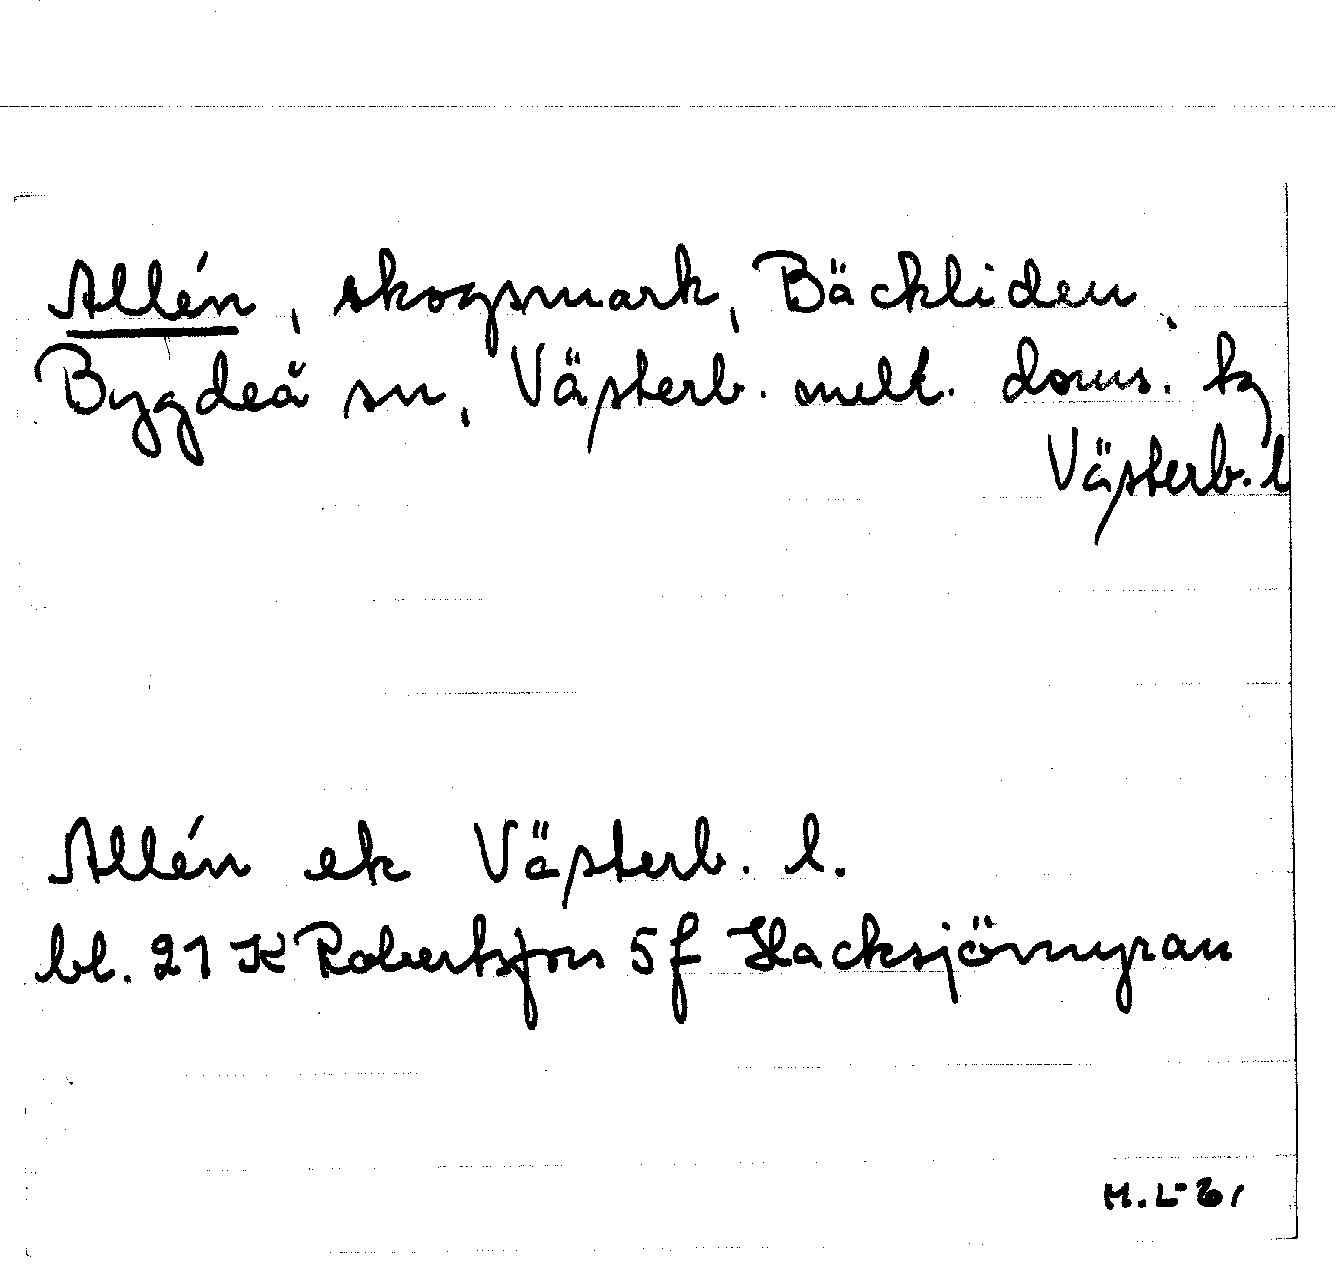 Allén, skogsmark, Bäckliden,
Bygdeå sn, Västerb. mell. doms. tg
Västerb. l
Allén ek Västerb. l.
bl. 21 K Robertsfors 5f Hacksjömyran
H.L-61